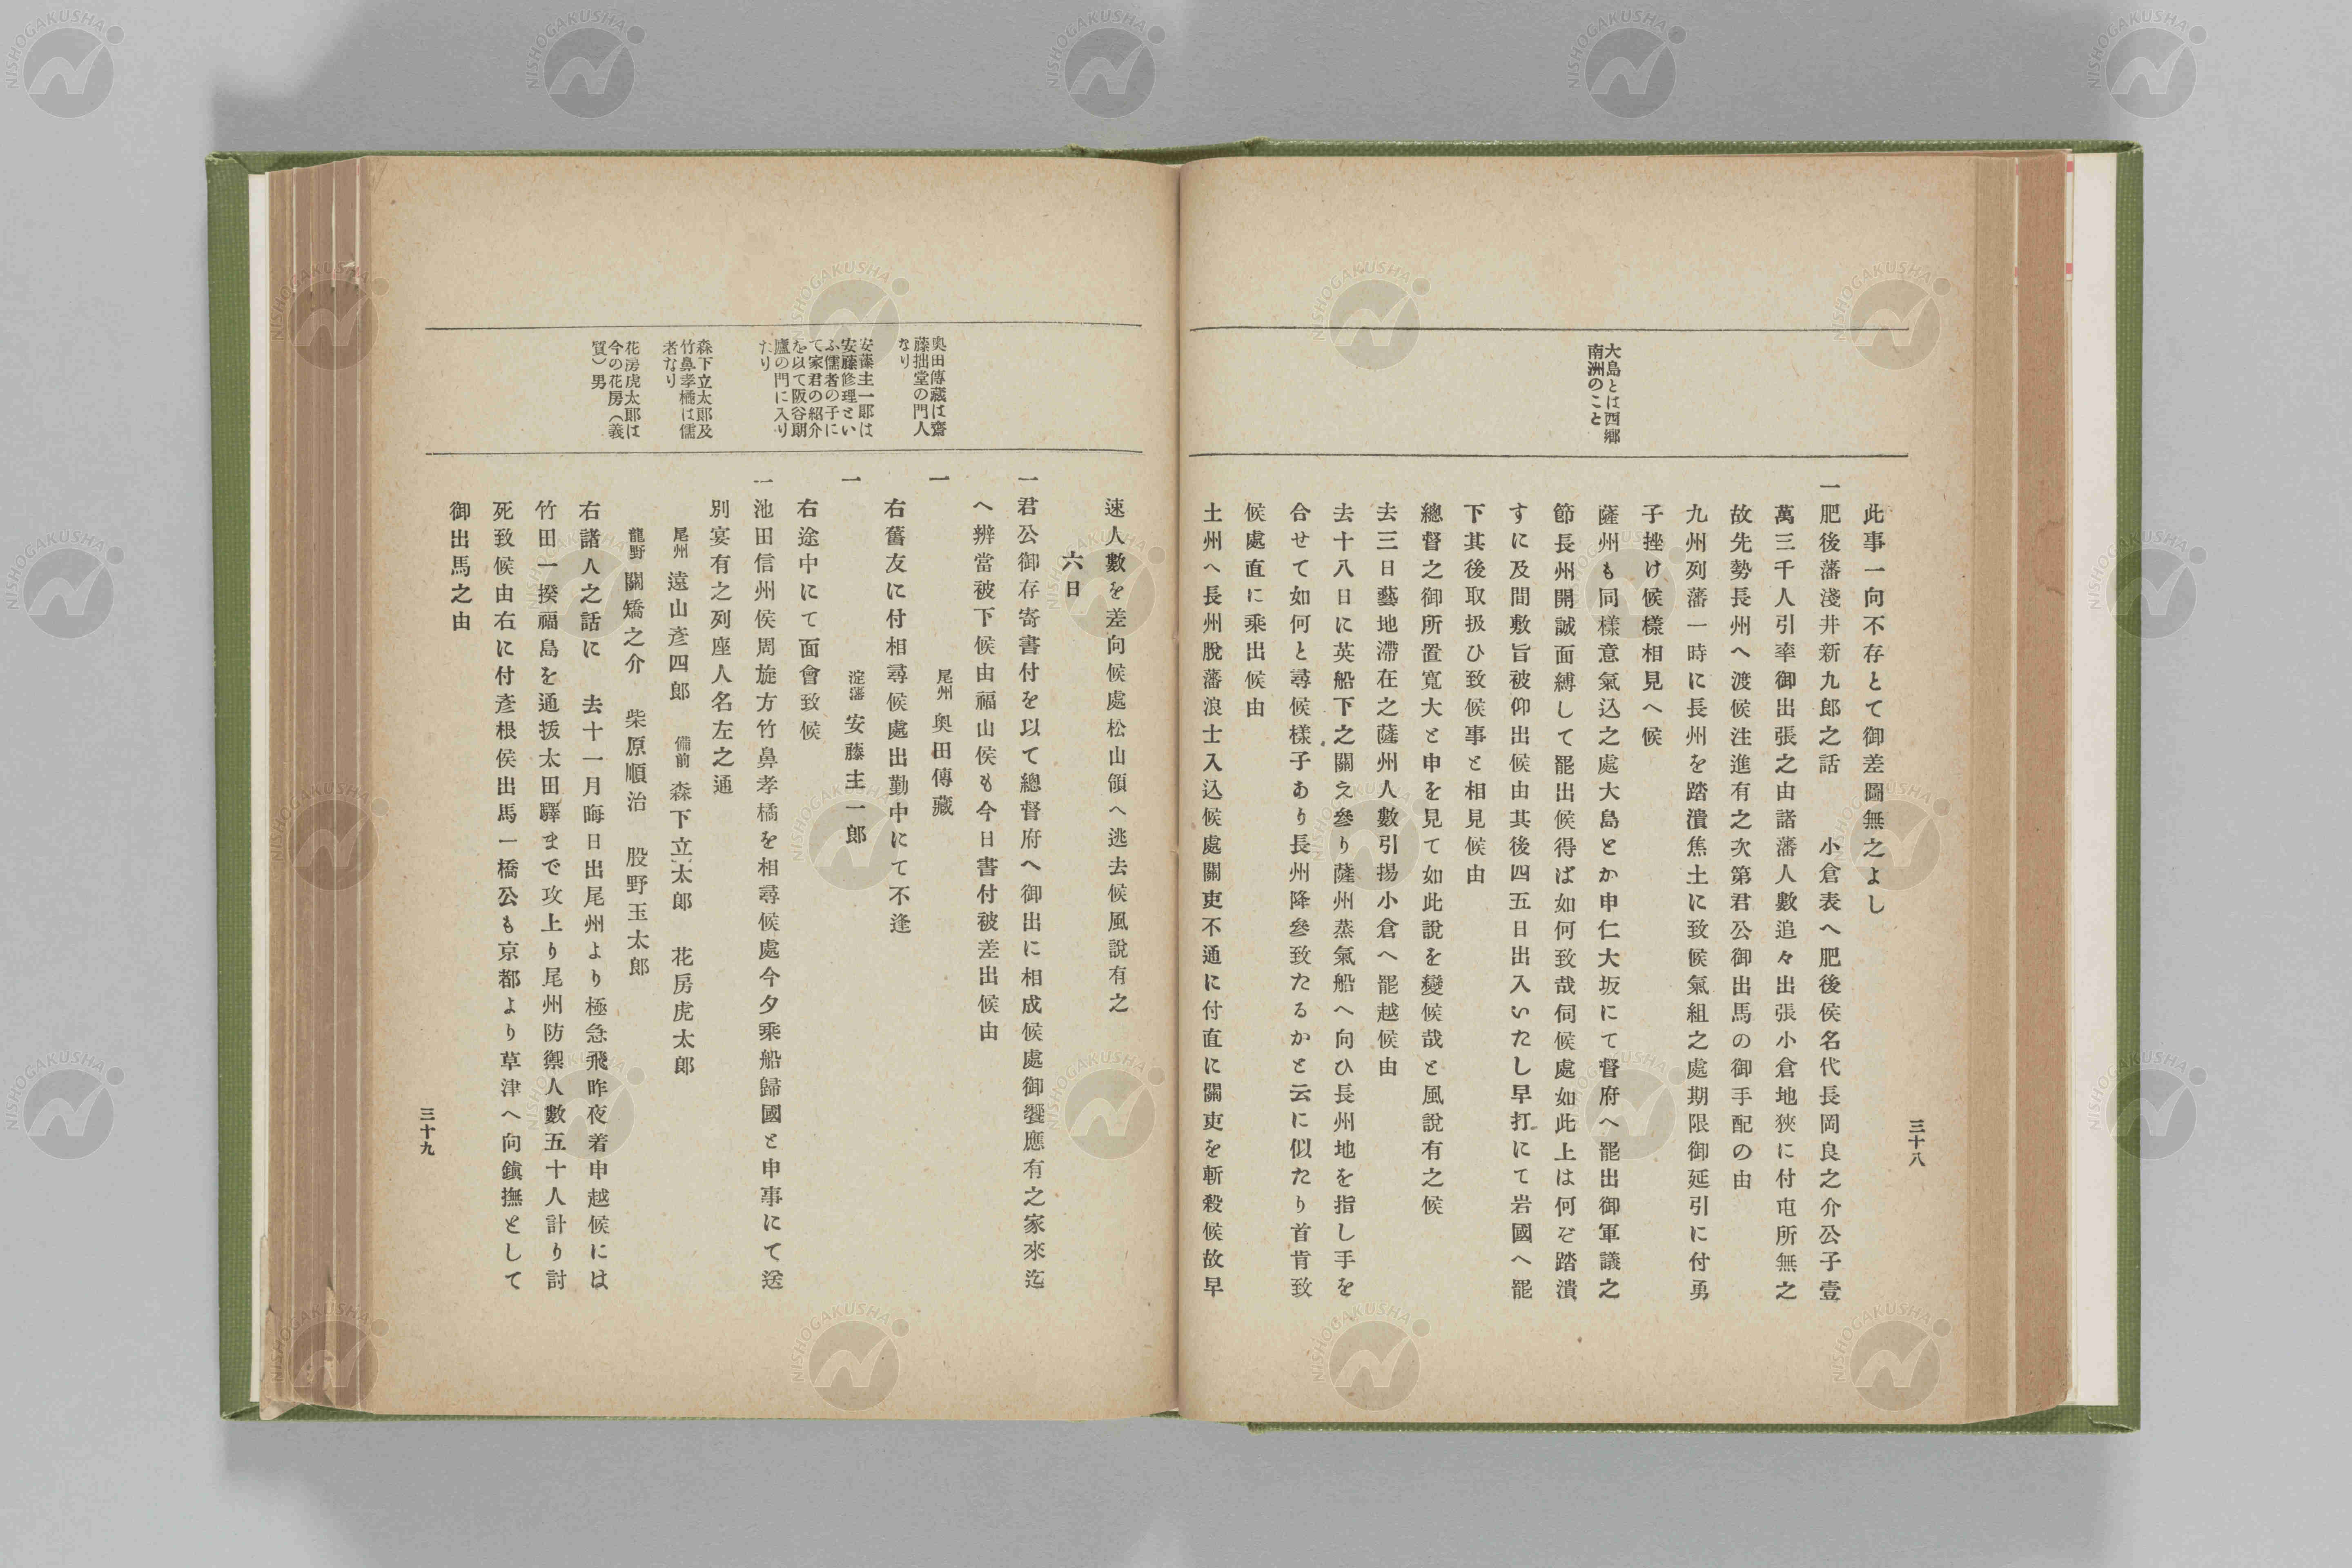 三十八
大島とは西郷
南洲のこと
此事一向不存とて御差圖無之よし
一肥後藩淺井新九郎之話　小倉表へ肥後侯名代長岡良之介公子壹
萬三千人引率御出張之由諸藩人數追々出張小倉地狹に付屯所無之
故先勢長州へ渡候注進有之次第君公御出馬の御手配の由
九州列藩一時に長州を踏潰焦土に致候氣組之處期限御延引に付勇
子挫け候樣相見へ候
薩州も同樣意氣込之處大島とか申仁大坂にて督府へ罷出御軍議之
節長州開誠面縛して罷出候得ば如何致哉伺候處如此上は何ぞ踏潰
すに及間敷旨被仰出候由其後四五日出入いたし早打にて岩國へ罷
下其後取扱ひ致候事と相見候由
總督之御所置寬大と申を見て如此說を變候哉と風說有之候
去三日藝地滯在之薩州人數引揚小倉へ罷越候由
去十八日に英船下之關え參り薩州蒸氣船へ向ひ長州地を指し手を
合せて如何と尋候樣子あり長州降參致たるかと云に似たり首肯致
候處直に乘出候由
土州へ長州脫藩浪士入込候處關吏不通に付直に關吏を斬殺候故早
奥田傳藏は齋
藤拙堂の門人
なり
安藤主一郎は
安藤修理とい
ふ儒者の子に
て家君の紹介
を以て阪谷朗
廬の門に入り
たり
森下立太郎及
竹鼻孝橘は儒
者なり
花房虎太郎は
今の花房（義
質）男
速人數を差向候處松山領へ逃去候風說有之
六日
一君公御存寄書付を以て總督府へ御出に相成候處御饗應有之家來迄
へ辨當被下候由福山侯も今日書付被差出候由
一　尾州　奥田傳藏
右舊友に付相尋候處出勤中にて不逢
一　淀藩　安藤主一郎
右途中にて面會致候
一池田信州侯周旋方竹鼻孝橘を相尋候處今夕乘船歸國と申事にて送
別宴有之列座人名左之通
尾州　遠山彥四郎　備前　森下立太郎　花房虎太郎
龍野　關矯之介　柴原順治　股野玉太郎
右諸人之話に　去十一月晦日出尾州より極急飛昨夜着申越候には
竹田一揆福島を通拔太田驛まで攻上り尾州防禦人數五十人計り討
死致候由右に付彥根侯出馬一橋公も京都より草津へ向鎭撫として
御出馬之由
三十九
NISHOGAKUSHA